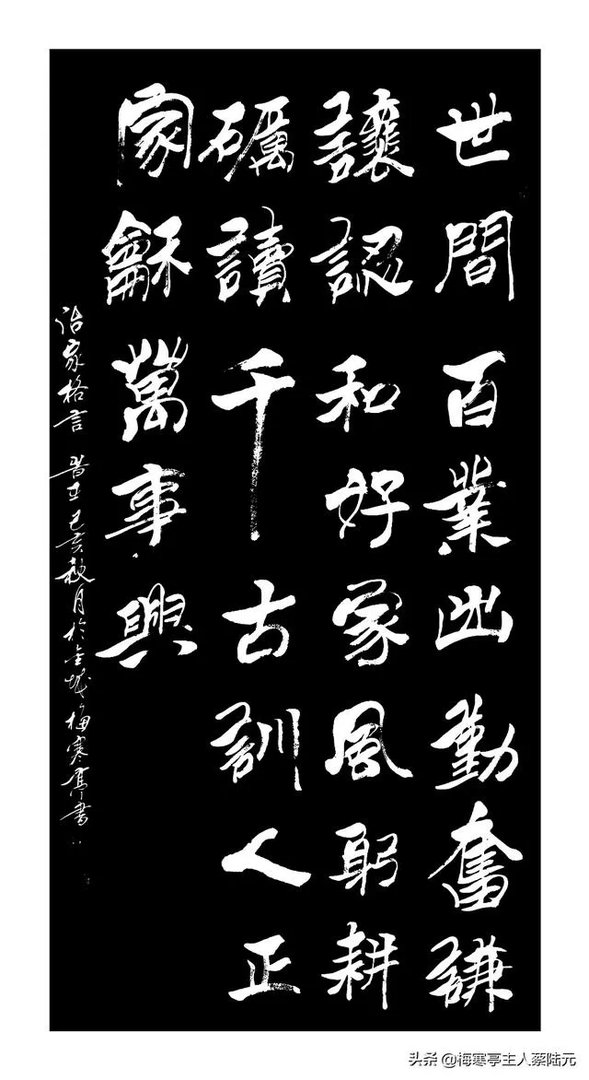 世間百業出勤奮謙
讓認和好家風躬耕
礪讀千古訓人正
家龢萬事興
治家格言 己亥秋月於金城梅寒亭書
头条 @梅寒亭主人蔡陆元